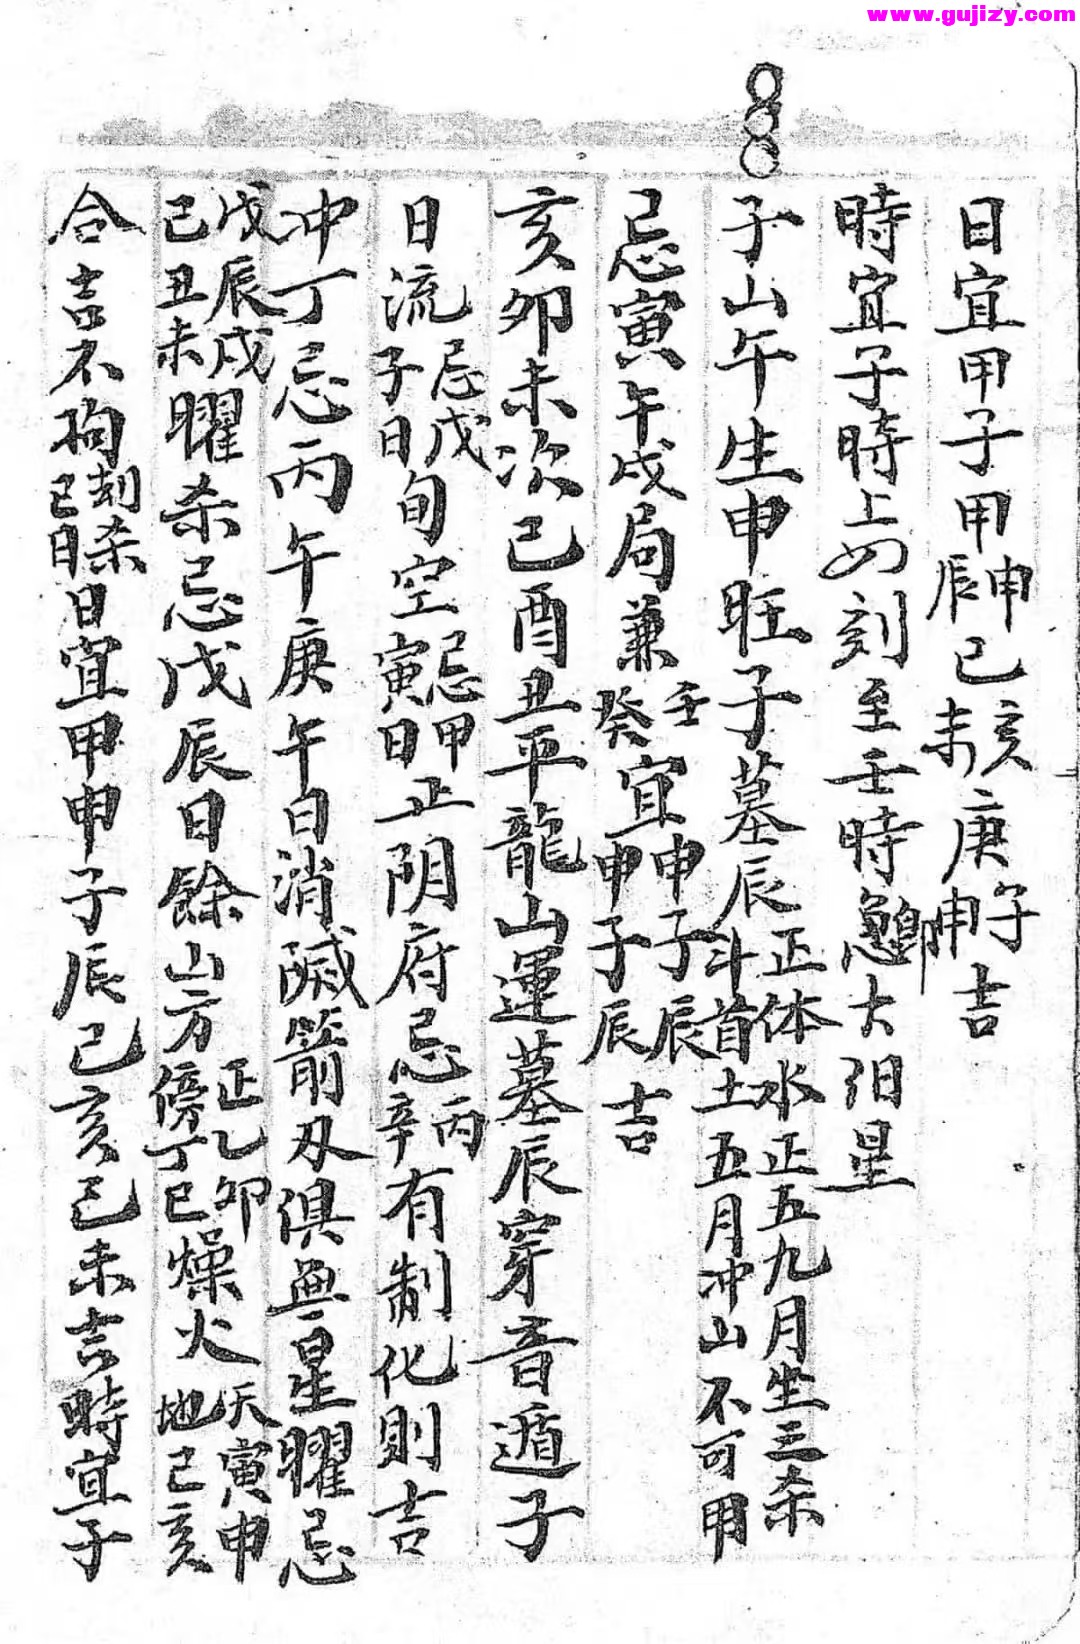 www.gujizy.com
日宜甲子甲申辰已亥未庚子申吉
時宜子時上四刻至壬時急卽大汨星
子山午生申旺子墓辰正体水正五九月坐三杀斗首土五月冲山不可用
忌寅午戍局兼壬癸宜申子辰申子辰吉
亥卯未次已酉丑平龍山運墓辰穿音遁子
日流忌戊子日旬空忌甲寅日正阴府忌丙辛有制化則吉
冲丁忌丙午庚午日消滅箭刃俱無星曜忌
戊辰戍己丑未曜杀忌戊辰日餘山方正乙卯傍丁巳燥火天寅申地已亥
合吉不拘刻杀已日日宜甲申子辰已亥已未吉時宜子